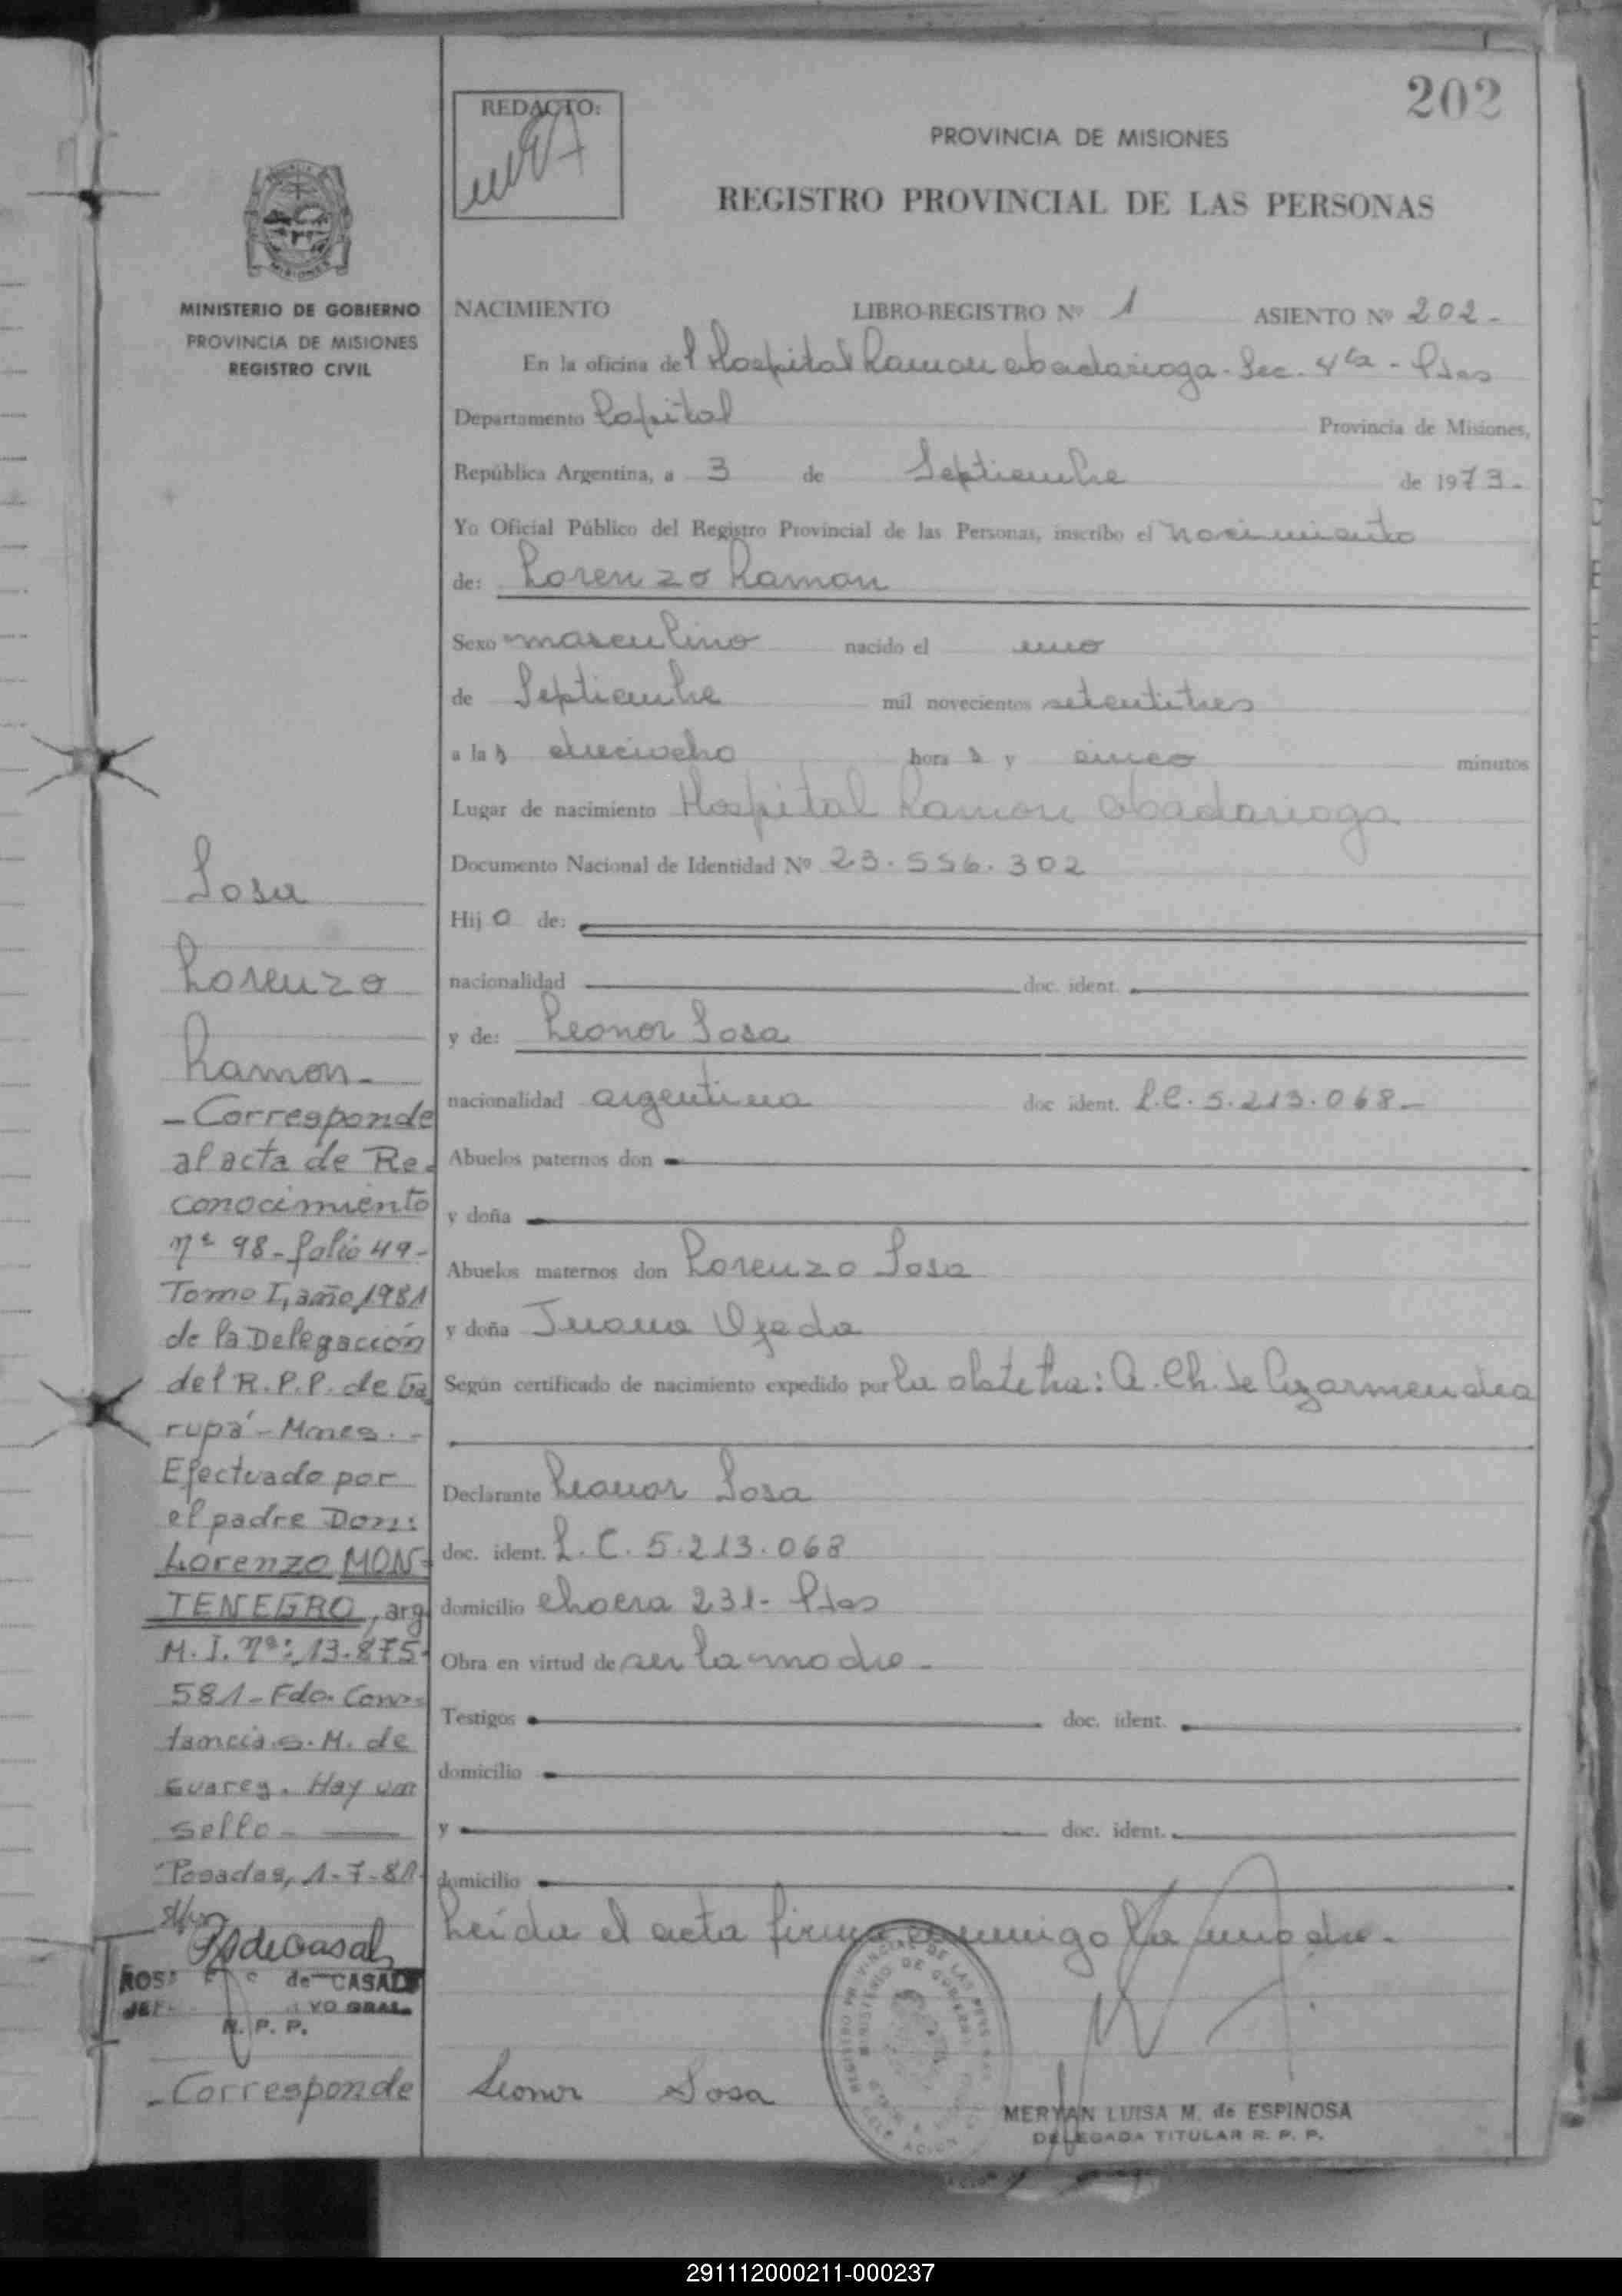 202
REDACTO:
PROVINCIA DE MISIONES
REGISTRO PROVINCIAL DE LAS PERSONAS
MINISTERIO DE GOBIERNO
PROVINCIA DE MISIONES
REGISTRO CIVIL
NACIMIENTO LIBRO-REGISTRO Nº 1 ASIENTO Nº 202-
En la oficina del Hospital Ramon Abadarioga - Sec. 4ta - Pdas
Departamento Capital Provincia de Misiones,
República Argentina, a 3 de Septiembre de 1973-
Yo Oficial Público del Registro Provincial de las Personas, inscribo el nacimiento
de: Lorenzo Ramon
Sexo masculino nacido el uno
de Septiembre mil novecientos setentitres
a las dieciocho horas y cinco minutos
Lugar de nacimiento Hospital Ramon Abadarioga
Documento Nacional de Identidad Nº 23.556.302
Hijo de:
nacionalidad doc. ident.
y de: Leonor Sosa
nacionalidad argentina doc ident. L.C. 5.213.068-
Abuelos paternos don
y doña
Abuelos maternos don Lorenzo Sosa
y doña Juana Ojeda
Según certificado de nacimiento expedido por la obstetra: A. Ch. de Lizarmendia
Declarante Leonor Sosa
doc. ident. L.C. 5.213.068
domicilio chacra 231- Pdas
Obra en virtud de ser la madre-
Testigos doc. ident.
domicilio
y doc. ident.
domicilio
Leída el acta firma conmigo la madre-
Leonor Sosa
MERYAN LUISA M. de ESPINOSA
DELEGADA TITULAR R. P. P.
Sosa
Lorenzo
Ramon-
- Corresponde
al acta de Re-
conocimiento
nº 98-folio 49-
Tomo I, año 1981
de la Delegación
del R.P.P. de Ga
rupá - Mnes. -
Efectuado por
el padre Don:
Lorenzo MON-
TENEGRO, arg
M.I. nº: 13.875-
581- Fdo. Cons-
tancia S. M. de
Suarez. Hay un
sello-
Posadas, 1-7-81-
de CASAL
R. P. P.
- Corresponde
291112000211-000237